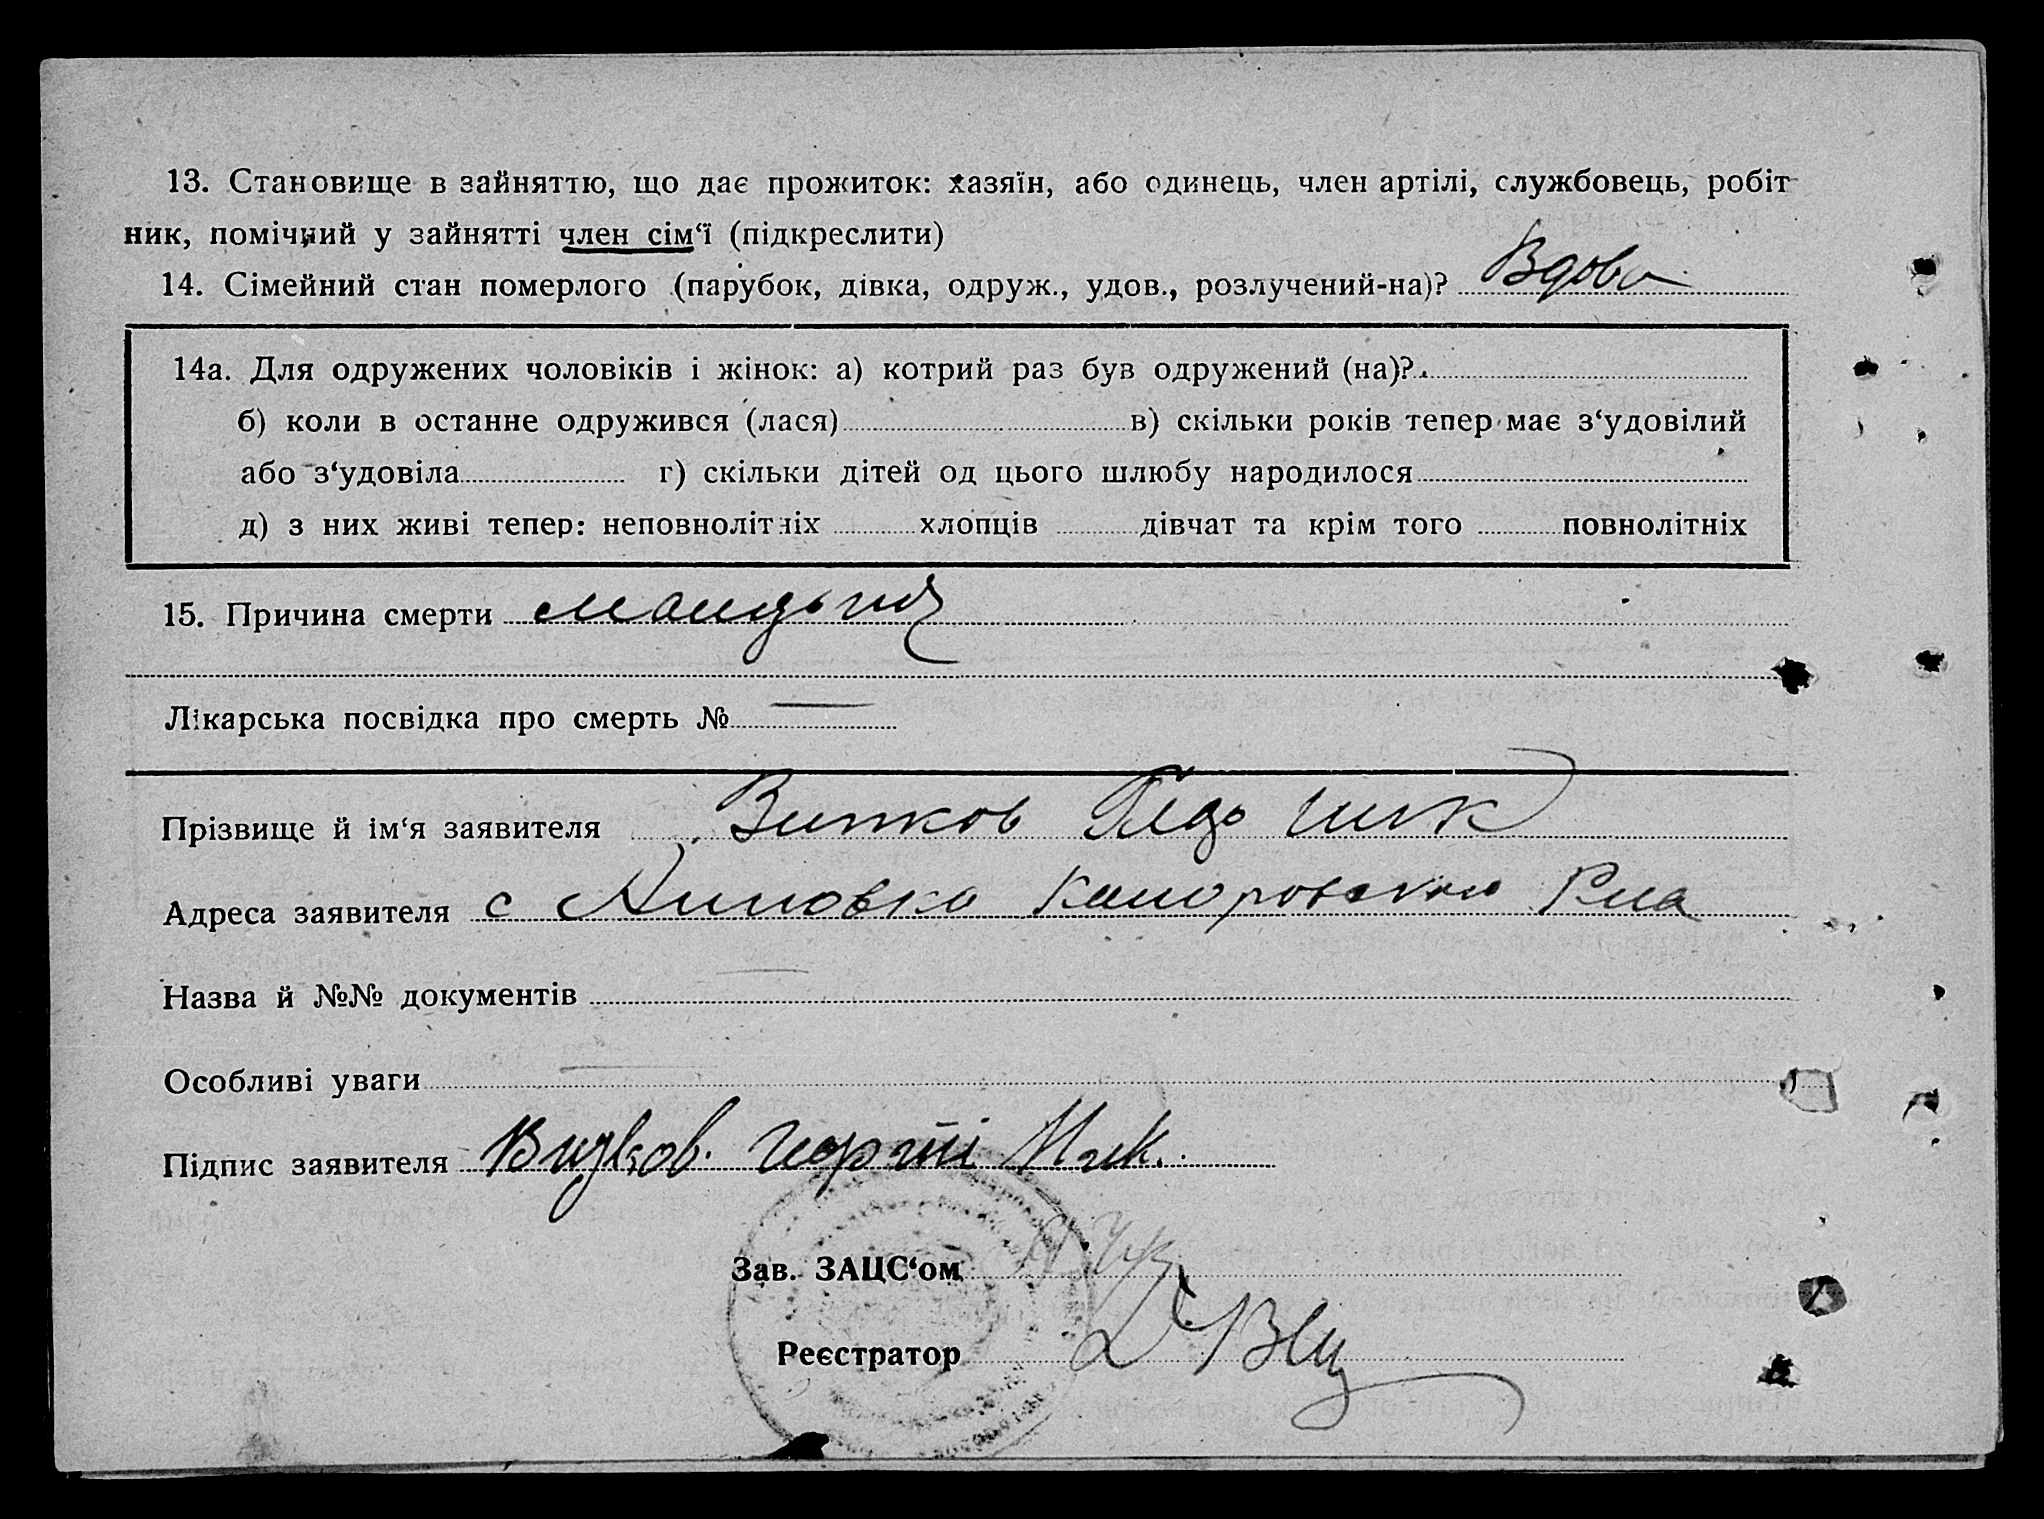 13. Становище в зайняттю, що дає прожиток: хазяїн, або одинець, член артілі, службовець, робіт
ник, помічний у зайнятті член сім‘ї (підкреслити)
14. Сімейний стан померлого (парубок, дівка, одруж., удов., розлучений-на)? Вдова
14а. Для одружених чоловіків і жінок: а) котрий раз був одружений (на)?
б) коли в останне одружився (лася) в) скільки років тепер має з‘удовілий
або з‘удовіла г) скільки дітей од цього шлюбу народилося
д) з них живі тепер: неповнолітніх хлопців дівчат та крім того повнолітніх
15. Причина смерти
Лікарська посвідка про смерть №
Прізвище й ім‘я заявителя
Адреса заявителя с
Назва й №№ документів
Особливі уваги
Підпис заявителя
Зав. ЗАЦС‘ом
Реєстратор